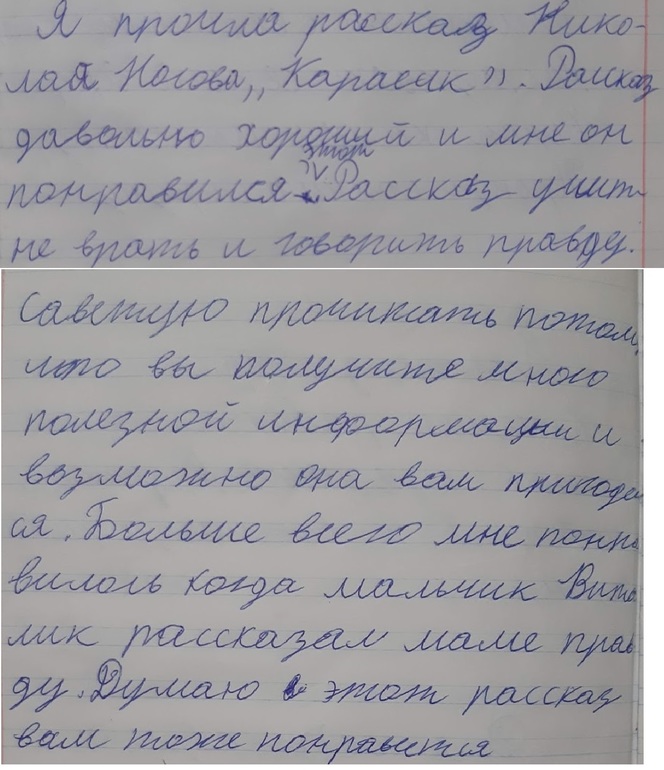 Я прочла рассказ Нико-
лая Носова ,, Карасик ". Рассказ
давольно хороший и мне он
этот
понравился. Рассказ учит
не врать и говорить правду.
Саветую прочитать потому
что вы получите много
полезной информации и
возможно она вам пригоде
ся. Больше всего мне понра
вилось когда мальчик Вита
лик рассказал маме прав
ду. Думаю этот рассказ
вам тоже понравится